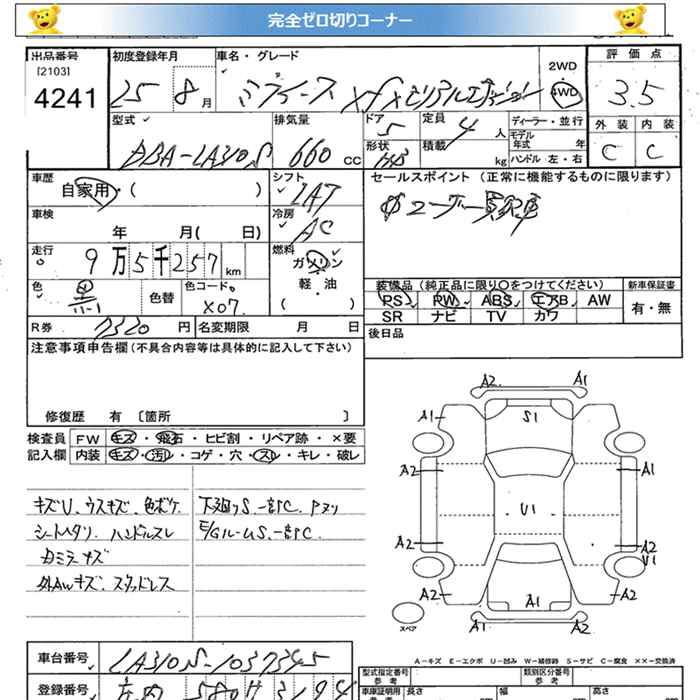 完全ゼロ切りコーナー
出品番号 初度登録年月 車名・グレード 2WD 評価点
[2103]
4241 25 8月 4WD 3.5
外装 内装
型式 排気量 ドア 定員 ディーラー・並行
DBA-LA310S 660cc 5 4人 モデル年式 年 C C
形状 H/B 積載 kg ハンドル 左・右
車歴 シフト セールスポイント (正常に機能するものに限ります)
自家用・( ) IAT
車検 冷房
年 月( 日) AC
走行 9万5千257km 燃料
ガソリン
軽・油
( )
色 黒 色替 色コード X07 装備品(純正品に限り〇をつけてください) 新車保証書
PS PW ABS エアB AW 有・無
SR ナビ TV カワ
R券 7320円 名変期限 月 日 後日品
注意事項申告欄(不具合内容等は具体的に記入して下さい)
修復歴 有 〔箇所 〕
検査員 FW キズ・飛石・ヒビ割・リペア跡・×要
記入欄 内装 キズ・汚レ・コゲ・穴・スレ・キレ・破レ
キズU、ウスキズ、色ボケ 下廻りS、一部C、Pヌリ
シートヘタリ、ハンドルスレ E/GルームS、一部C
カミラキズ
外AWキズ、スタッドレス
A2 A1
A1 S1
A2 A1
U1
A2 A2
U1
A2 A1 A2
A2 A1
スペア
A-キズ E-エクボ U-凹み W-補修跡 S-サビ C-腐食 ××-交換済
車台番号 LA310S-1037345
型式指定番号 類別区分番号
参考 参考
登録番号
車庫証明用 長さ 幅 高さ